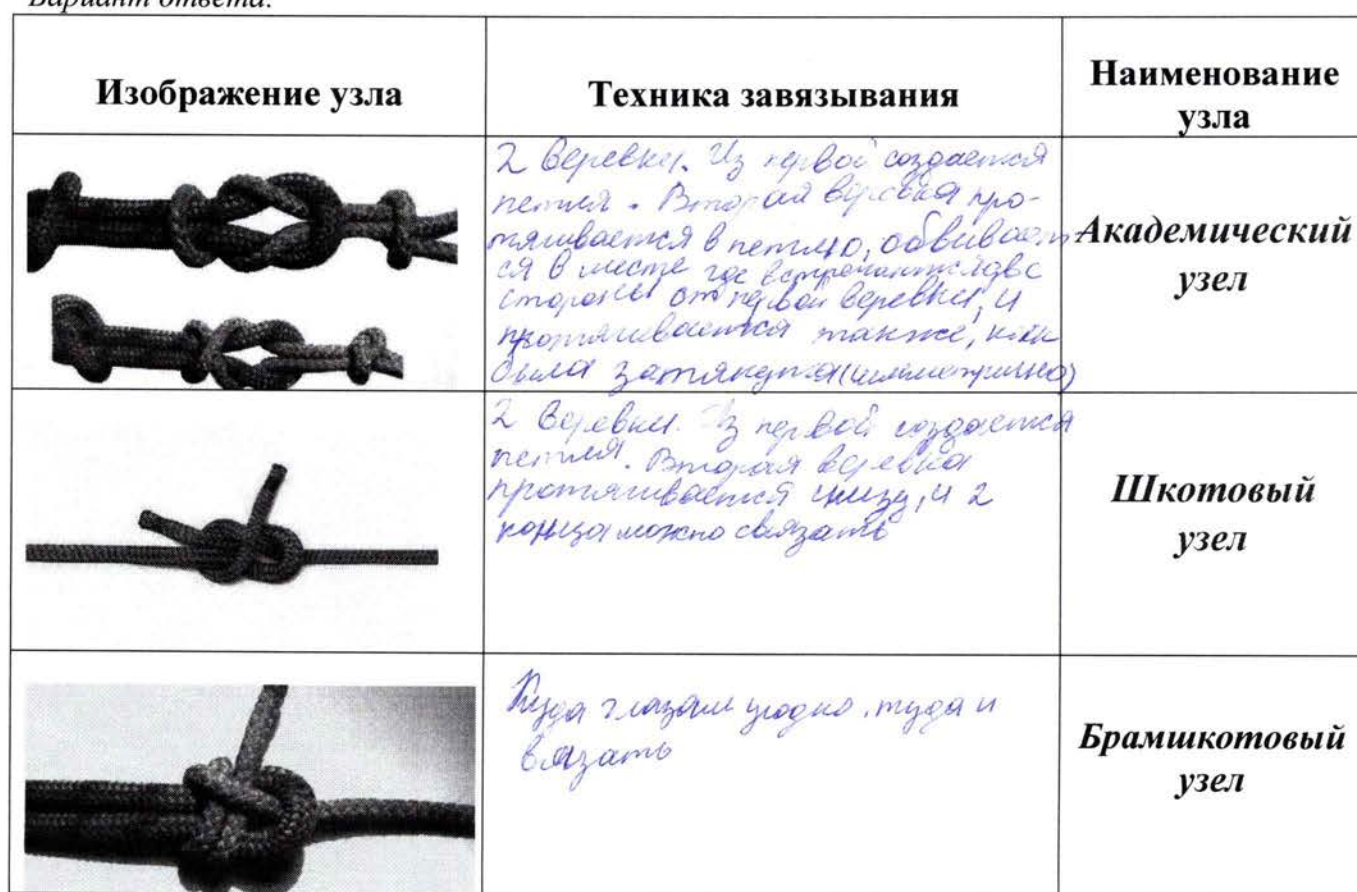 Вариант ответа:
Изображение узла
Техника завязывания
Наименование
узла
2 веревки. Из первой создается
петля. Вторая веревка про-
тягивается в петлю, обвивает-
ся в месте где встречаются две
стороны от первой веревки, и
протягивается также, как
была затянута (симметрично)
Академический
узел
2 веревки. Из первой создается
петля. Вторая веревка
протягивается снизу, и 2
конца можно связать
Шкотовый
узел
Куда глазам угодно, туда и
вязать
Брамшкотовый
узел